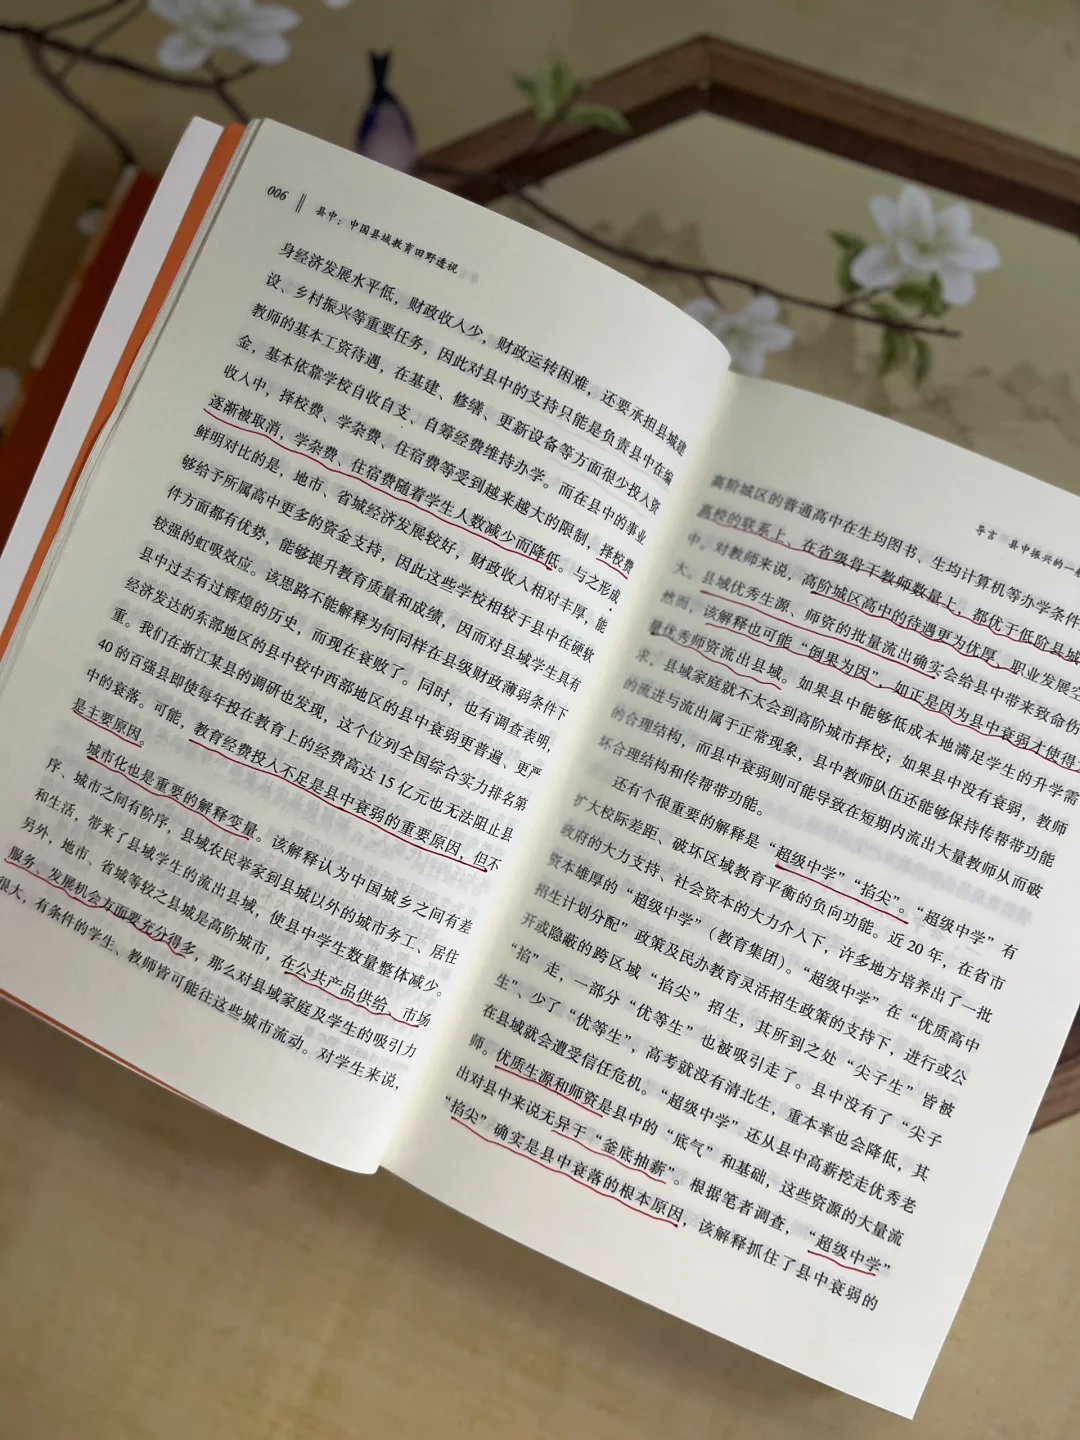 006
县中：中国县域教育田野透视
身经济发展水平低，财政收入少，财政运转困难，还要承担县城建
设、乡村振兴等重要任务，因此对县中的支持只能是负责县中在编
教师的基本工资待遇，在基建、修缮、更新设备等方面很少投入资
金，基本依靠学校自收自支、自筹经费维持办学。而在县中的事业
收入中，择校费、学杂费、住宿费等受到越来越大的限制，择校费
逐渐被取消，学杂费、住宿费随着学生人数减少而降低。与之形成
鲜明对比的是，地市、省城经济发展较好，财政收入相对丰厚，能
够给予所属高中更多的资金支持，因此这些学校相较于县中在硬软
件方面都有优势，能够提升教育质量和成绩，因而对县域学生具有
较强的虹吸效应。该思路不能解释为何同样在县级财政薄弱条件下
县中过去有过辉煌的历史，而现在衰败了。同时，也有调查表明，
经济发达的东部地区的县中较中西部地区的县中衰弱更普遍、更严
重。我们在浙江某县的调研也发现，这个位列全国综合实力排名第
40 的百强县即使每年投在教育上的经费高达 15 亿元也无法阻止县
中的衰落。可能，教育经费投入不足是县中衰弱的重要原因，但不
是主要原因。
城市化也是重要的解释变量。该解释认为中国城乡之间有差
序、城市之间有阶序，县域农民举家到县域以外的城市务工、居住
和生活，带来了县域学生的流出县域，使县中学生数量整体减少。
另外，地市、省城等较之县城是高阶城市，在公共产品供给、市场
服务、发展机会方面要充分得多，那么对县域家庭及学生的吸引力
很大，有条件的学生、教师皆可能往这些城市流动。对学生来说，
导言 县中振兴的一
高阶城区的普通高中在生均图书、生均计算机等办学条件
高校的联系上，在省级骨干教师数量上，都优于低阶县域
中。对教师来说，高阶城区高中的待遇更为优厚，职业发展空
大。县域优秀生源、师资的批量流出确实会给县中带来致命伤
然而，该解释也可能“倒果为因”，如正是因为县中衰弱才使得
量优秀师资流出县域。如果县中能够低成本地满足学生的升学需
求，县域家庭就不太会到高阶城市择校；如果县中没有衰弱，教师
的流进与流出属于正常现象，县中教师队伍还能够保持传帮带功能
的合理结构，而县中衰弱则可能导致在短期内流出大量教师从而破
坏合理结构和传帮带功能。
还有个很重要的解释是“超级中学”“掐尖”。“超级中学”有
扩大校际差距、破坏区域教育平衡的负向功能。近 20 年，在省市
政府的大力支持、社会资本的大力介入下，许多地方培养出了一批
资本雄厚的“超级中学”（教育集团）。“超级中学”在“优质高中
招生计划分配”政策及民办教育灵活招生政策的支持下，进行或公
开或隐蔽的跨区域“掐尖”招生，其所到之处“尖子生”皆被
“掐”走，一部分“优等生”也被吸引走了。县中没有了“尖子
生”、少了“优等生”，高考就没有清北生，重本率也会降低，其
在县域就会遭受信任危机。“超级中学”还从县中高薪挖走优秀老
师。优质生源和师资是县中的“底气”和基础，这些资源的大量流
出对县中来说无异于“釜底抽薪”。根据笔者调查，“超级中学”
“掐尖”确实是县中衰落的根本原因，该解释抓住了县中衰弱的